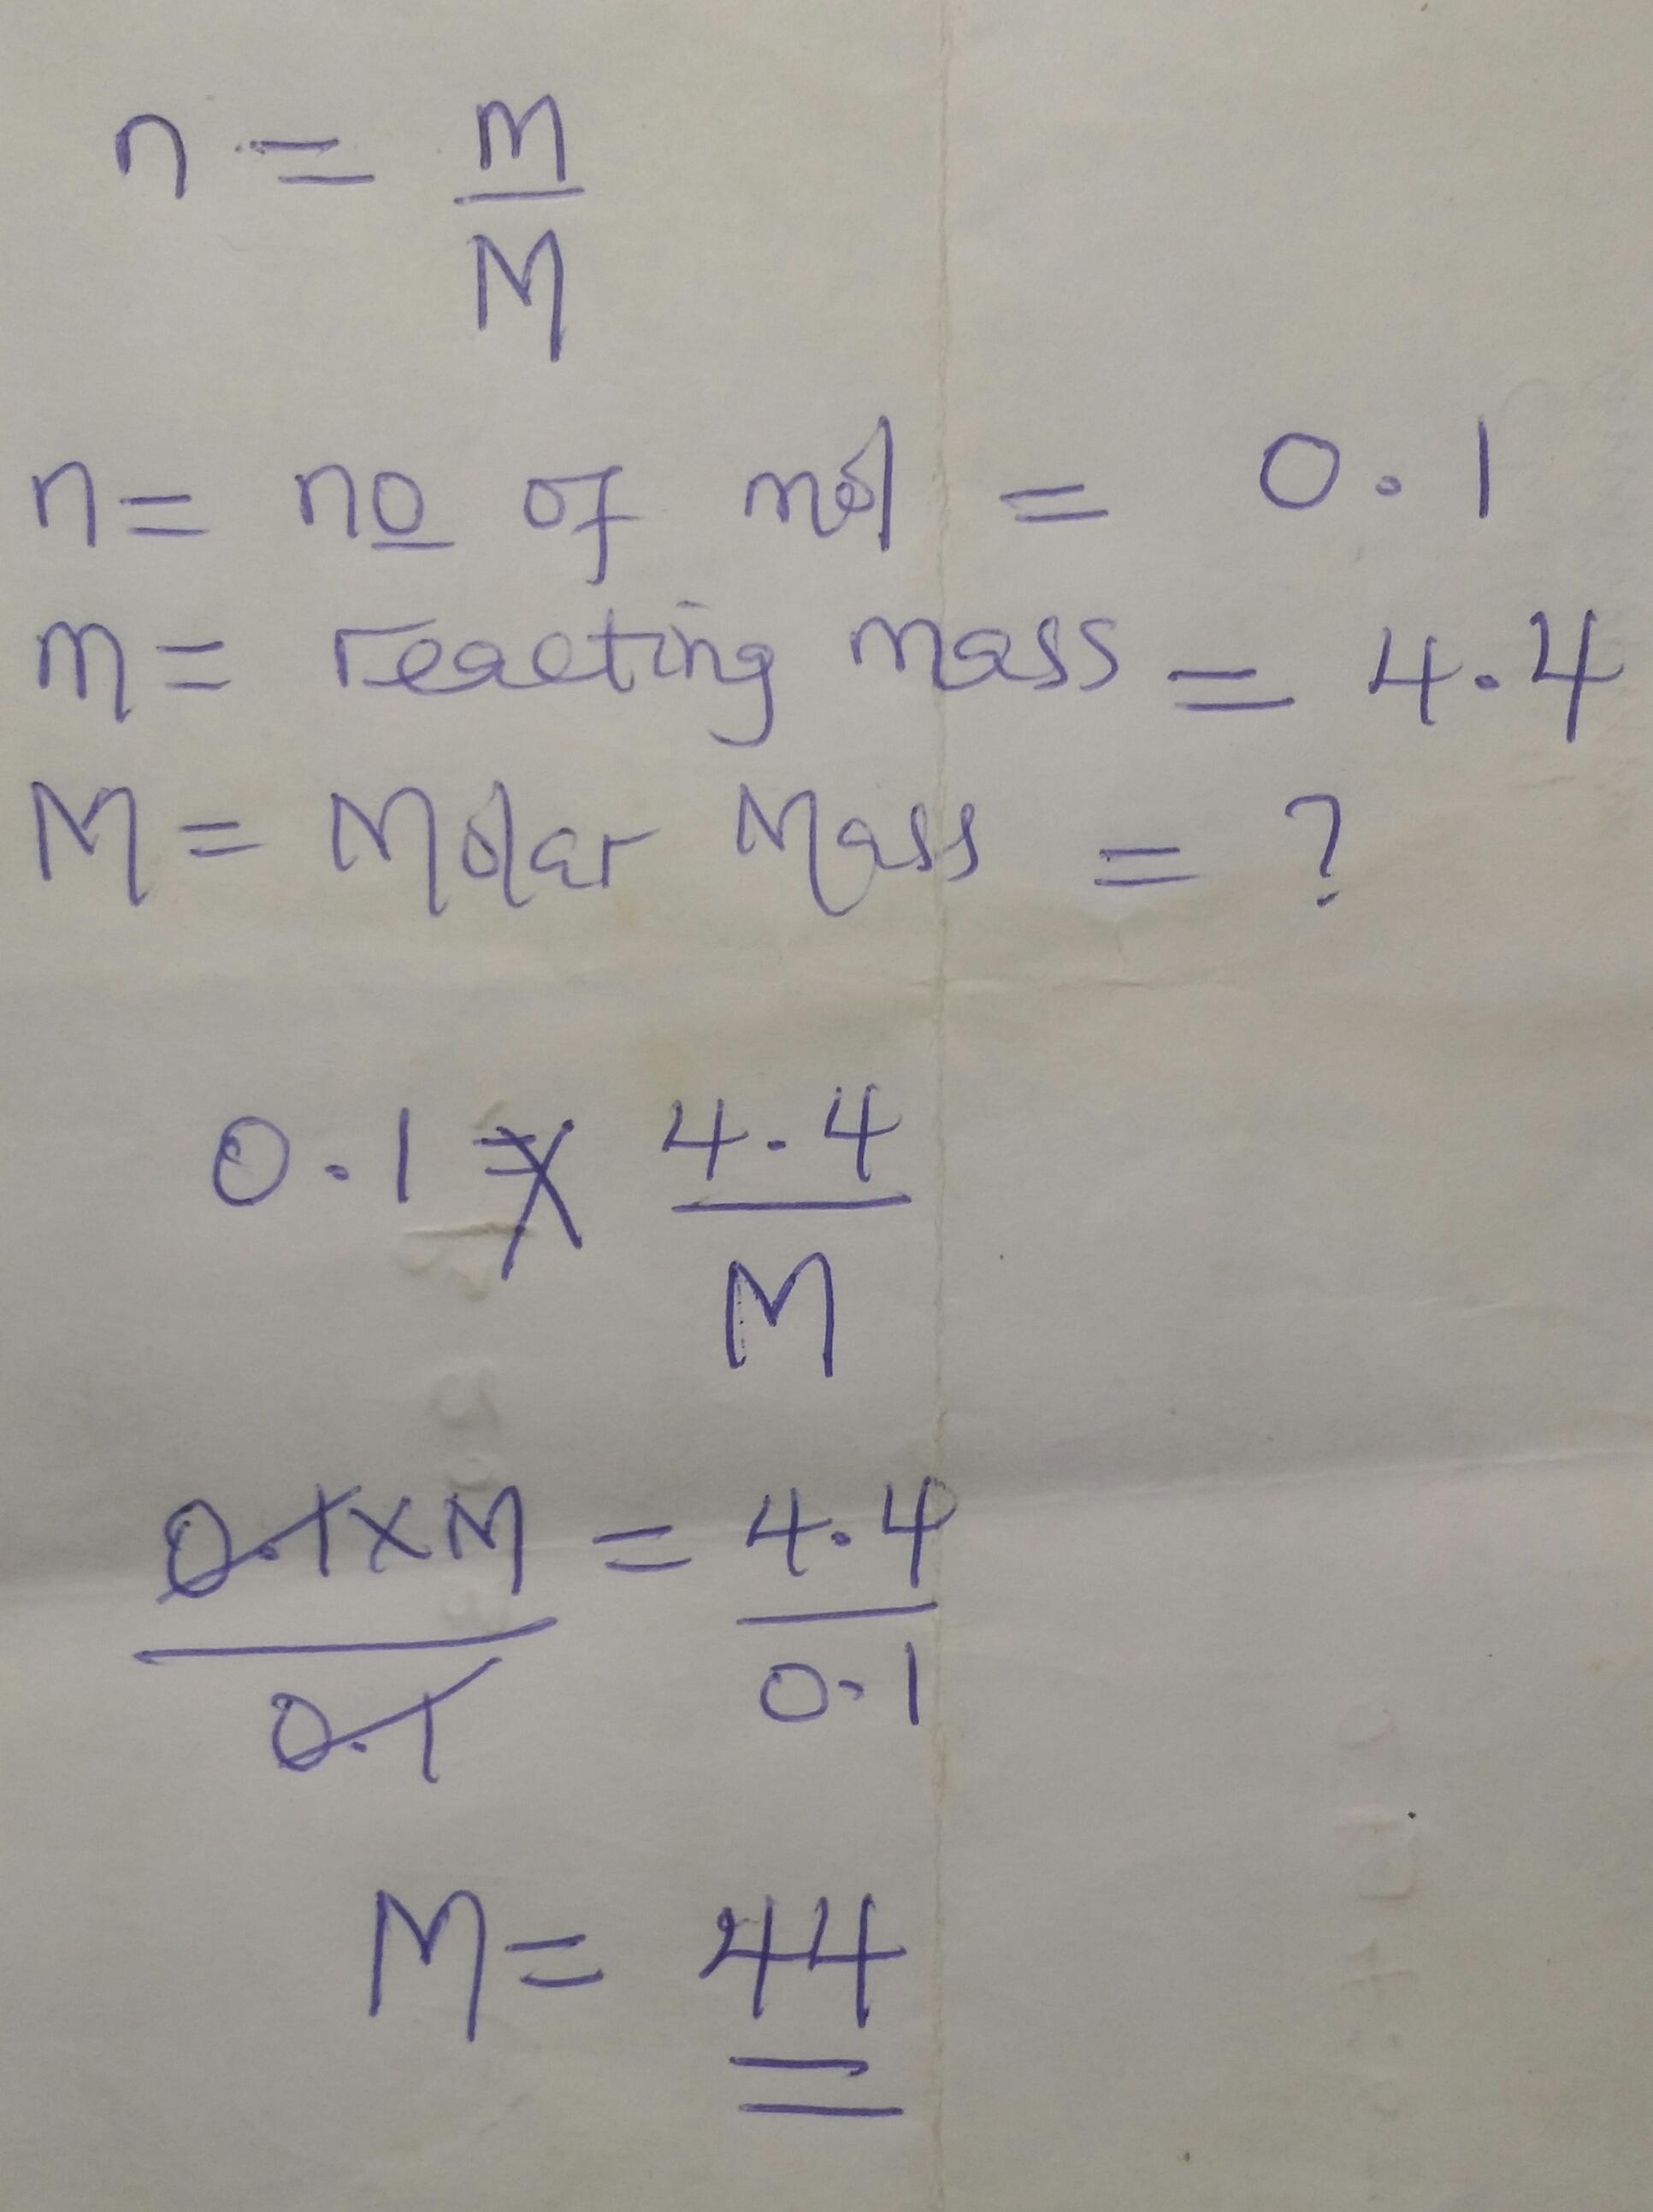 n = m/M
n = no of mol = 0.1
m = reacting mass = 4.4
M = Molar Mass = ?
0.1 = 4.4/M
0.1 x M/0.1 = 4.4/0.1
M = 44